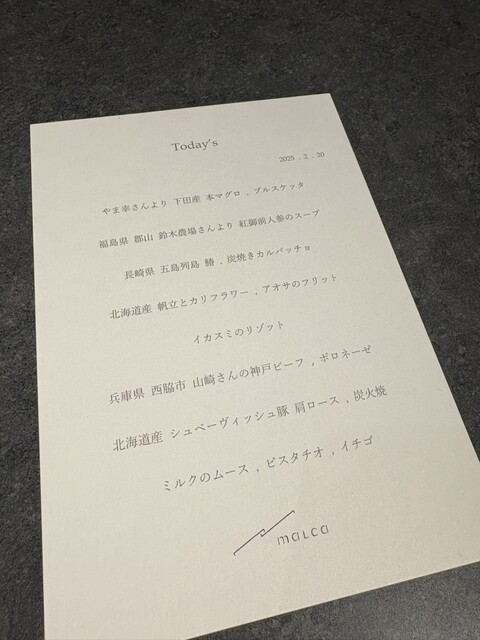 Today's
2025 . 2 . 20
やま幸さんより 下田産 本マグロ , ブルスケッタ
福島県 郡山 鈴木農場さんより 紅御前人参のスープ
長崎県 五島列島 鰆 , 炭焼きカルパッチョ
北海道産 帆立とカリフラワー , アオサのフリット
イカスミのリゾット
兵庫県 西脇市 山崎さんの神戸ビーフ , ボロネーゼ
北海道産 シュベーヴィッシュ豚 肩ロース , 炭火焼
ミルクのムース , ピスタチオ , イチゴ
malca